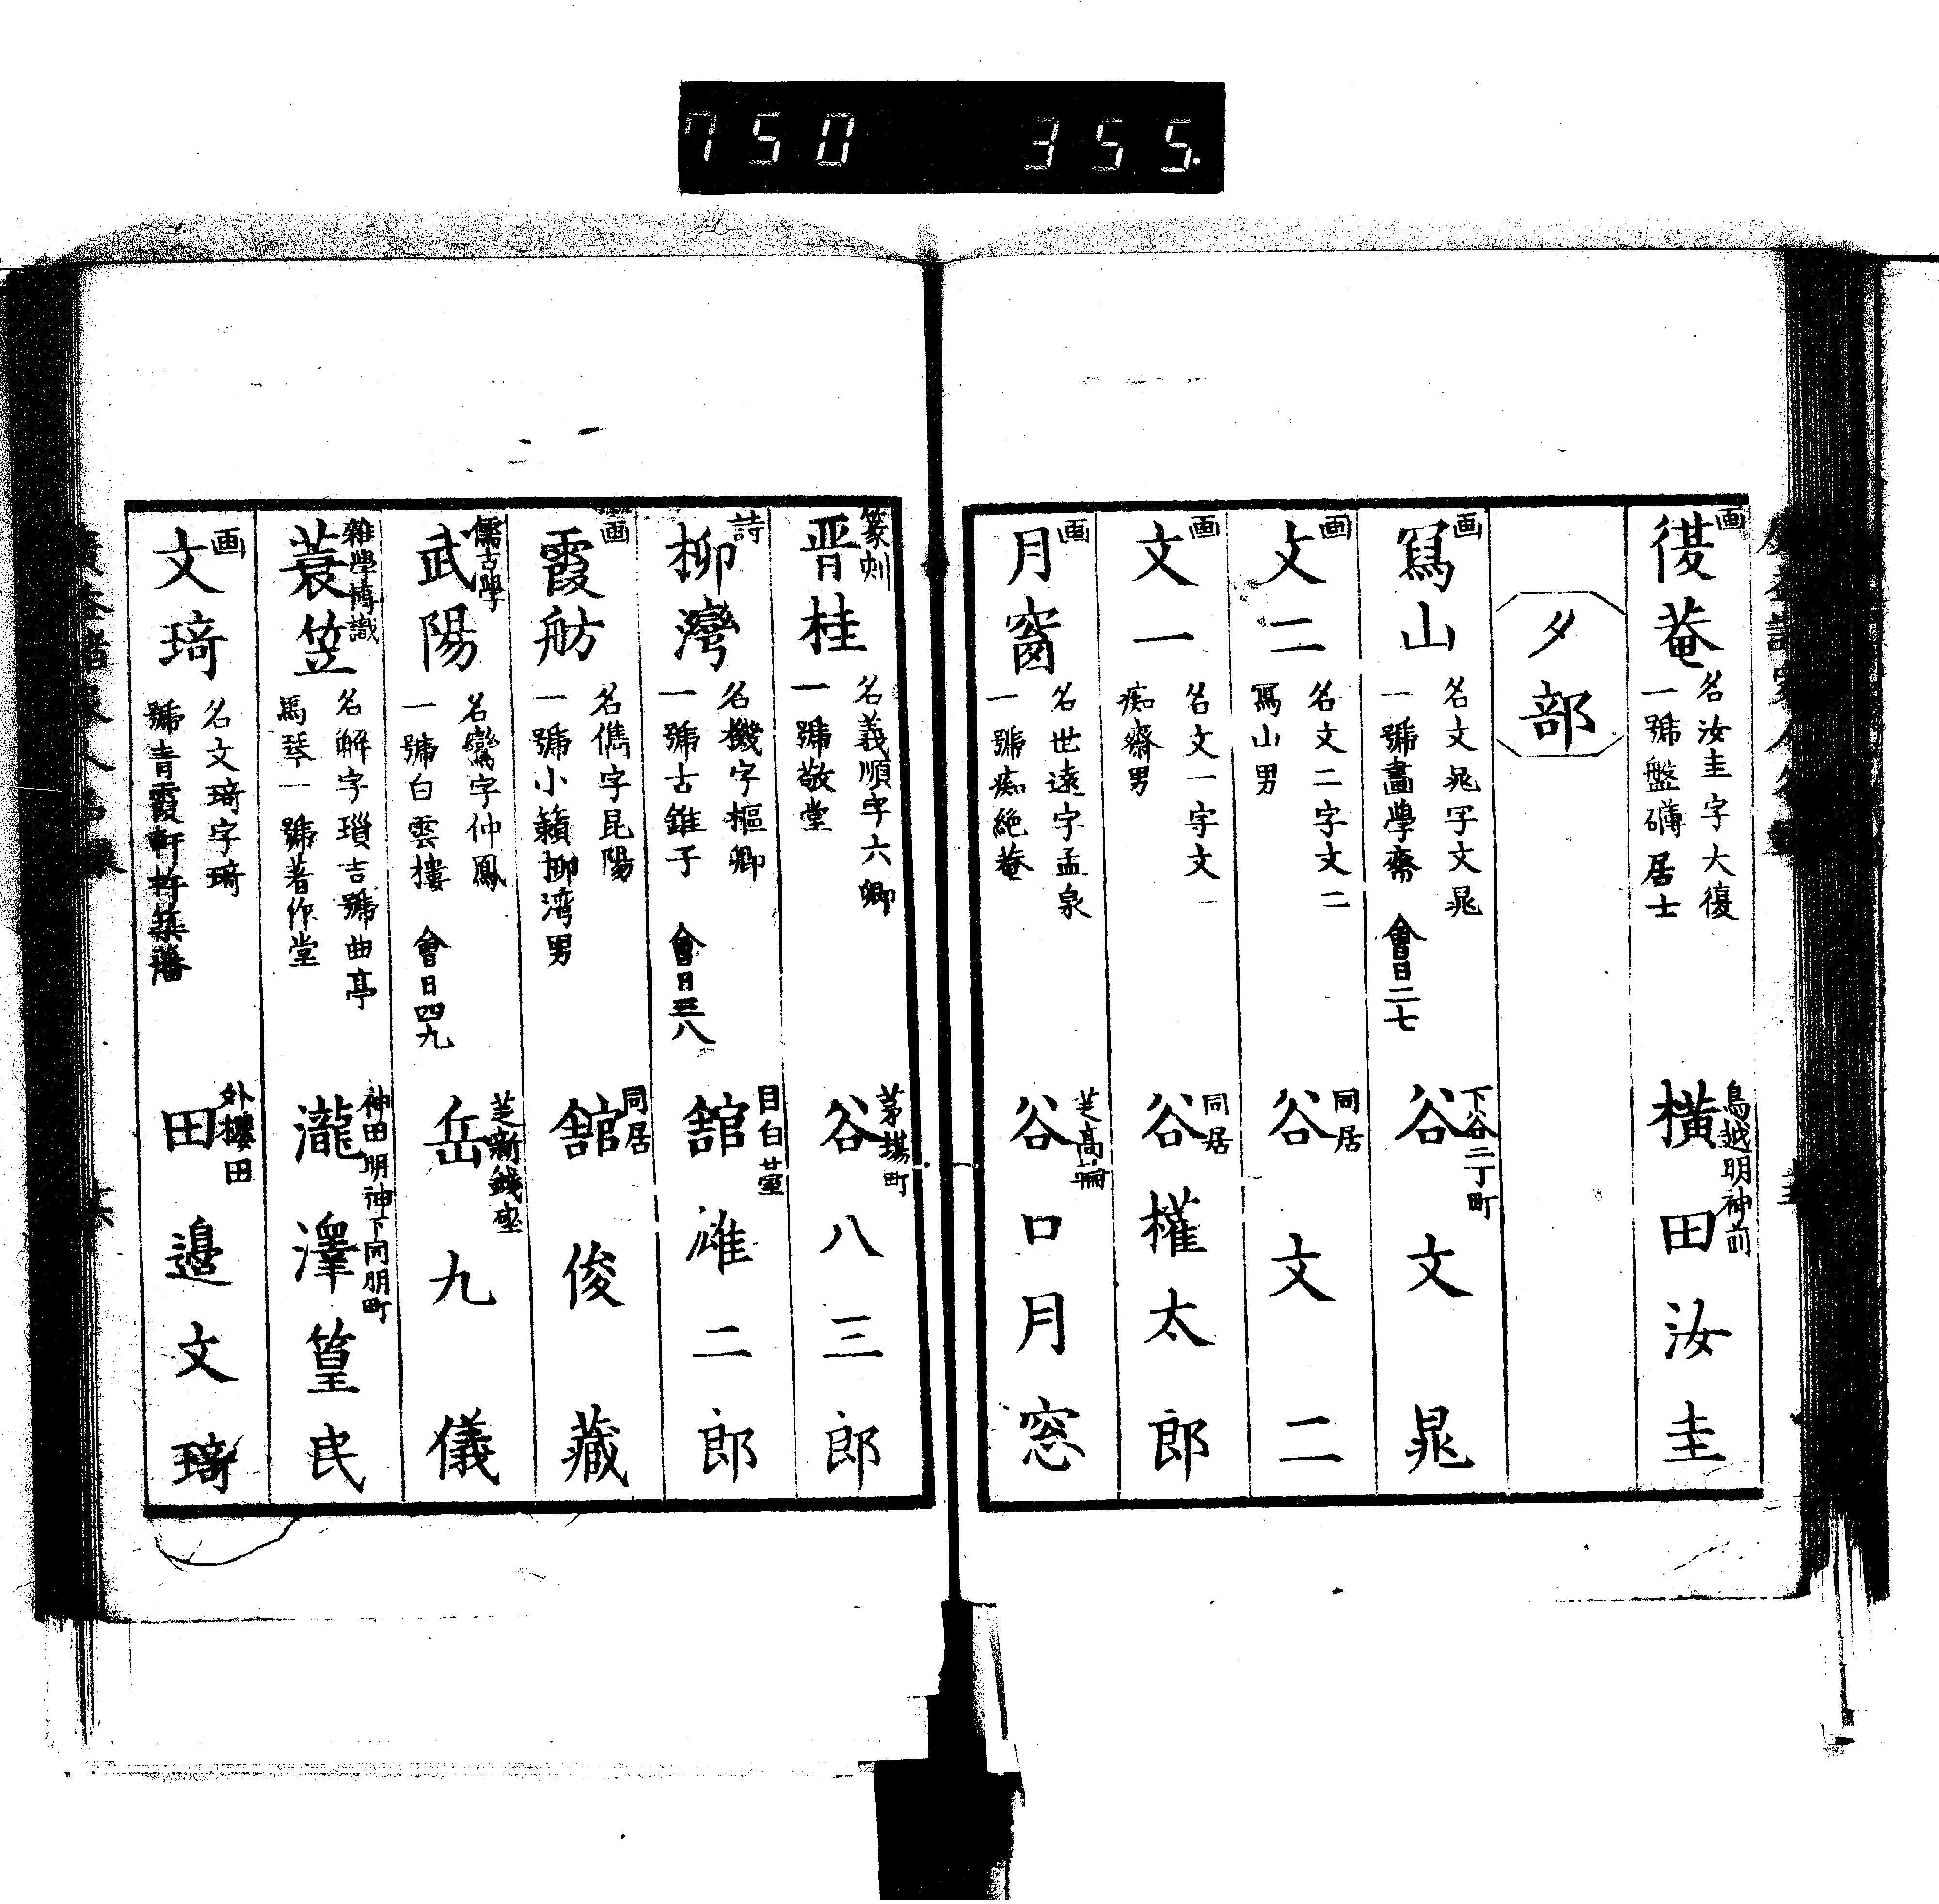 750 355.
画
復菴
名汝圭字大復
一號盤礴居士
鳥越明神前
橫田汝圭
タ部
画
寫山
名文晁字文晁
一號畫學齋
會日二七
下谷二丁町
谷文晁
画
文二
名文二字文二
寫山男
同居
谷文二
画
文一
名文一字文一
痴齋男
同居
谷權太郎
画
月窗
名世遠字孟泉
一號痴絶菴
芝高輪
谷口月窓
篆刻
晋桂
名義順字六卿
一號敬堂
茅場町
谷八三郎
詩
柳灣
名機字樞卿
一號古錐子
會日三八
目白臺
舘雄二郎
画
霞舫
名儁字昆陽
一號小籟柳湾男
同居
舘俊藏
儒古學
武陽
名鸞字仲鳳
一號白雲樓
會日四九
芝新錢座
岳九儀
雜學博識
蓑笠
名解字瑣吉號曲亭
馬琴一號著作堂
神田明神下同朋町
瀧澤篁民
画
文琦
名文琦字琦
號青霞軒杵築藩
外櫻田
田邉文琦